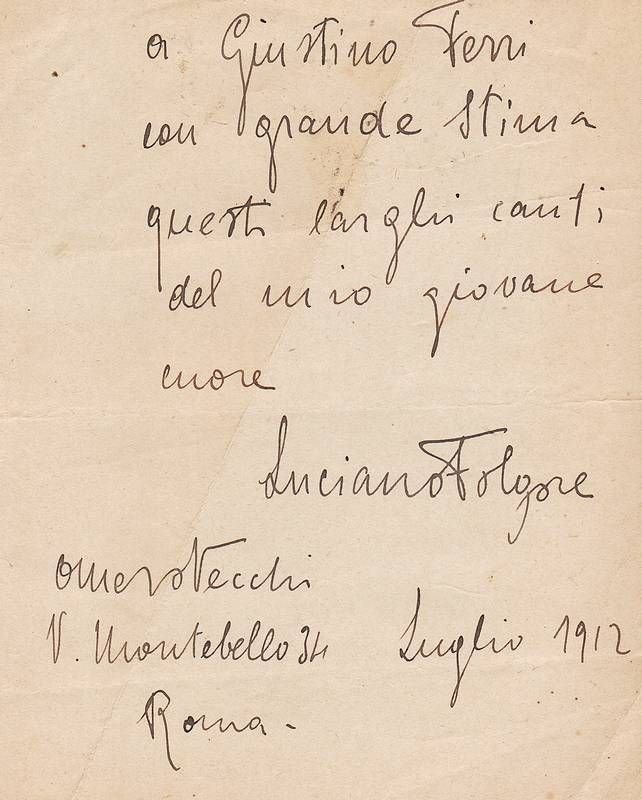 a Giustino Ferri
con grande stima
questi larghi canti
del mio giovane
cuore
Luciano Folgore
Omero Vecchi
V. Montebello 34 Luglio 1912
Roma -